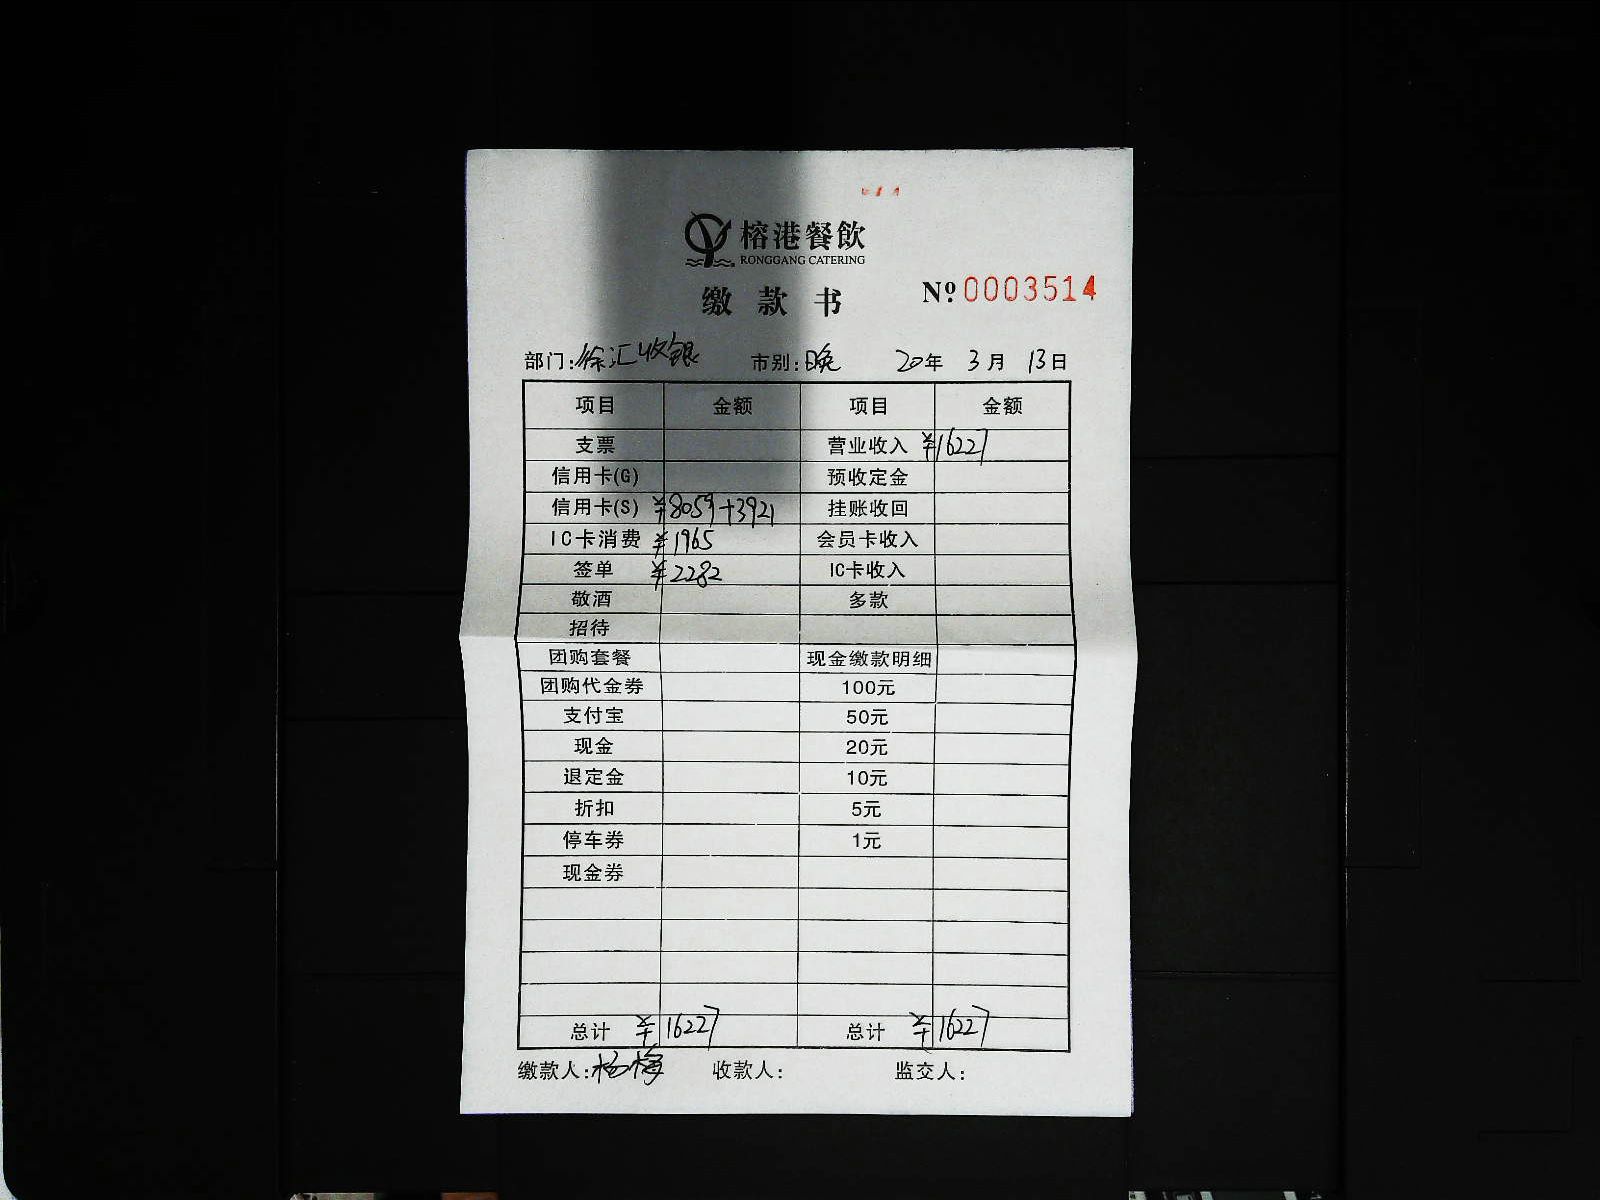 榕港餐飲
RONGGANG CATERING
缴款书
No 0003514
部门:徐汇收银 市别:晚 20年 3月 13日
项目 金额 项目 金额
支票 营业收入 ¥16227
信用卡(G) 预收定金
信用卡(S) ¥8059+3921 挂账收回
IC卡消费 ¥1965 会员卡收入
签单 ¥2282 IC卡收入
敬酒 多款
招待
团购套餐 现金缴款明细
团购代金券 100元
支付宝 50元
现金 20元
退定金 10元
折扣 5元
停车券 1元
现金券
总计 ¥16227 总计 ¥16227
缴款人:杨梅 收款人: 监交人: